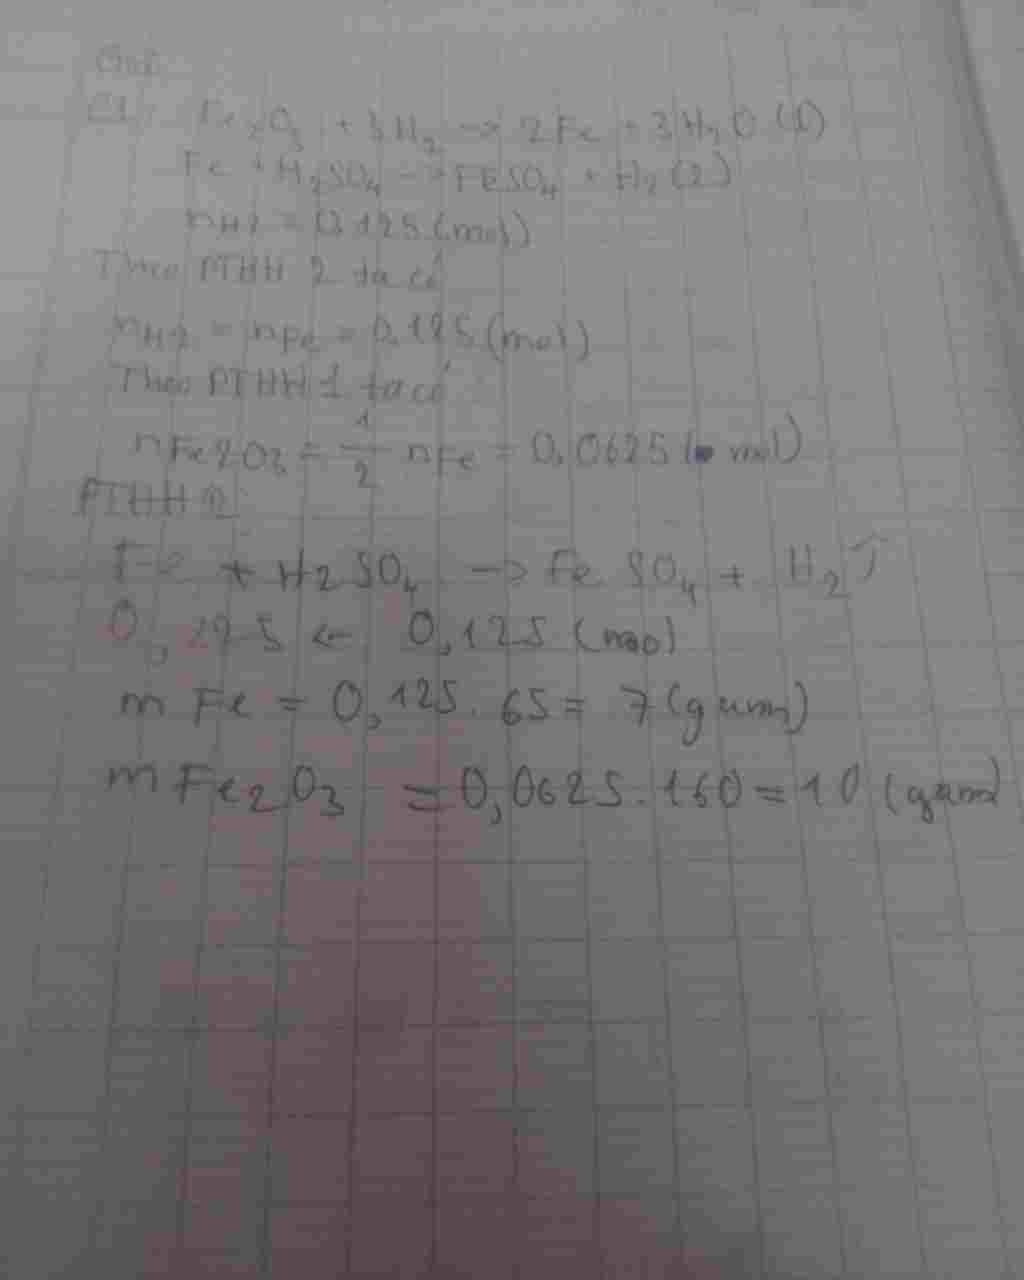 Giải
C1: Fe2O3 + 3H2 -> 2Fe + 3H2O (1)
Fe + H2SO4 -> FESO4 + H2 (2)
nH2 = 0,125 (mol)
Theo PTHH 2 ta có
nH2 = nFe = 0,125 (mol)
Theo PTHH 1 ta có
nFe2O3 = 1/2 nFe = 0,0625 (mol)
PTHH
Fe + H2SO4 -> Fe SO4 + H2↑
0,125 <- 0,125 (mol)
m Fe = 0,125 . 65 = 7 (gam)
m Fe2O3 = 0,0625 . 160 = 10 (gam)